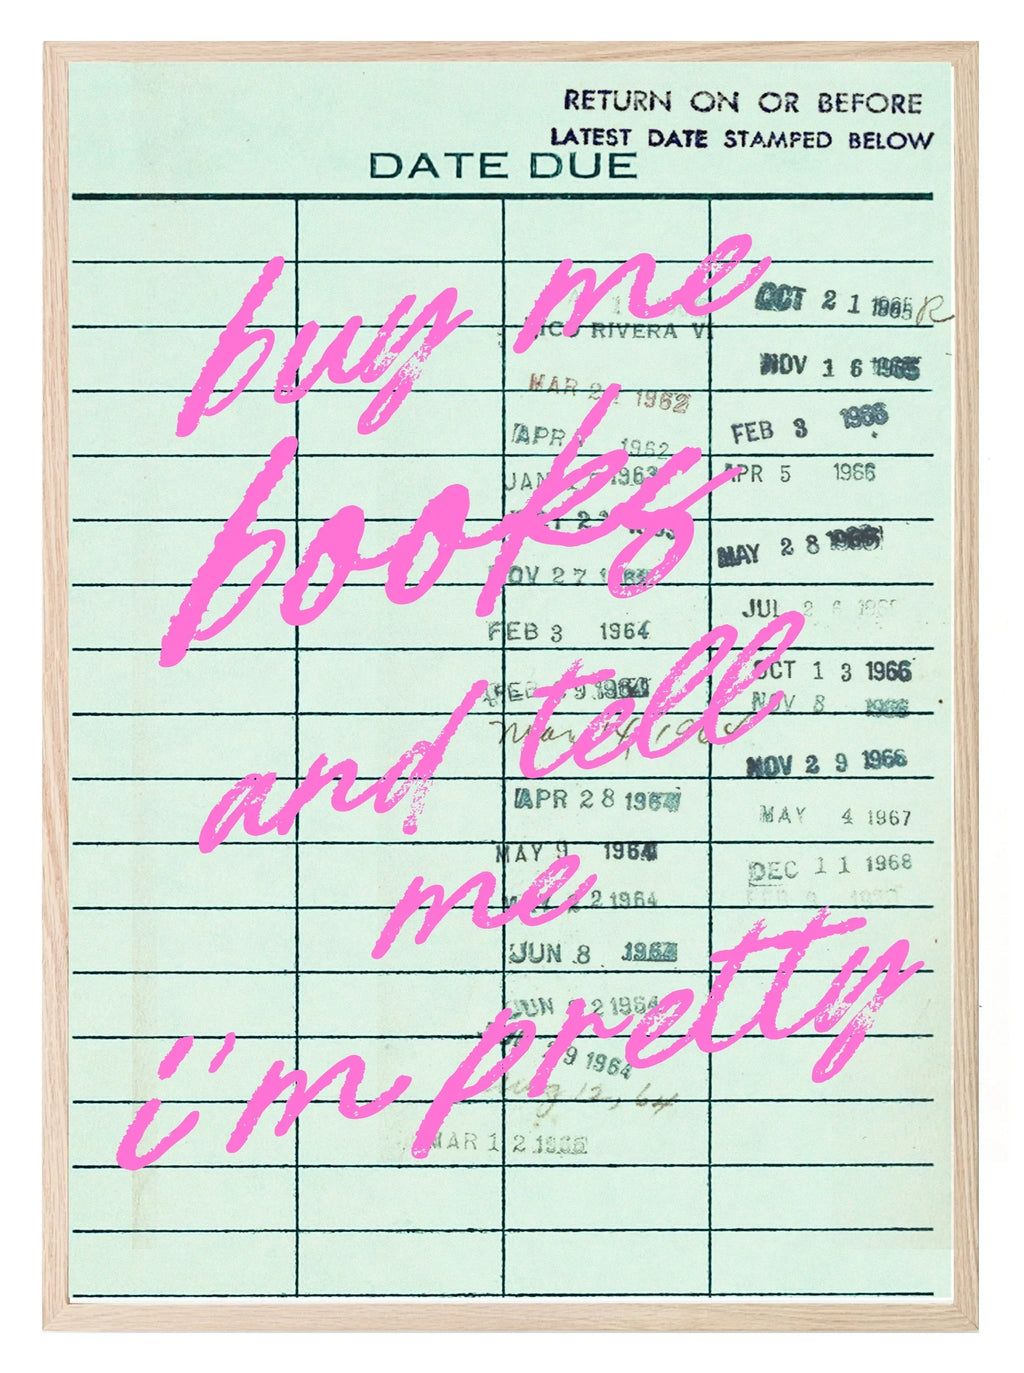 RETURN ON OR BEFORE
LATEST DATE STAMPED BELOW
DATE DUE
buy me
books
and tell
me
i'm pretty
RIVERA
MAR 1962
APR 1962
JAN 1963
NOV 27
FEB 3 1964
FEB 1964
APR 28 1964
MAY 9 1964
2 2 1964
JUN 8 1964
JUN 2 1964
29 1964
Aug 12, 64
MAR 1 2
OCT 2 1 1965 R
NOV 1 6 1965
FEB 3 1966
APR 5 1966
MAY 2 8 1966
JUL 2 6
OCT 1 3 1966
NOV 8 1966
NOV 2 9 1966
MAY 4 1967
DEC 1 1 1968
FEB